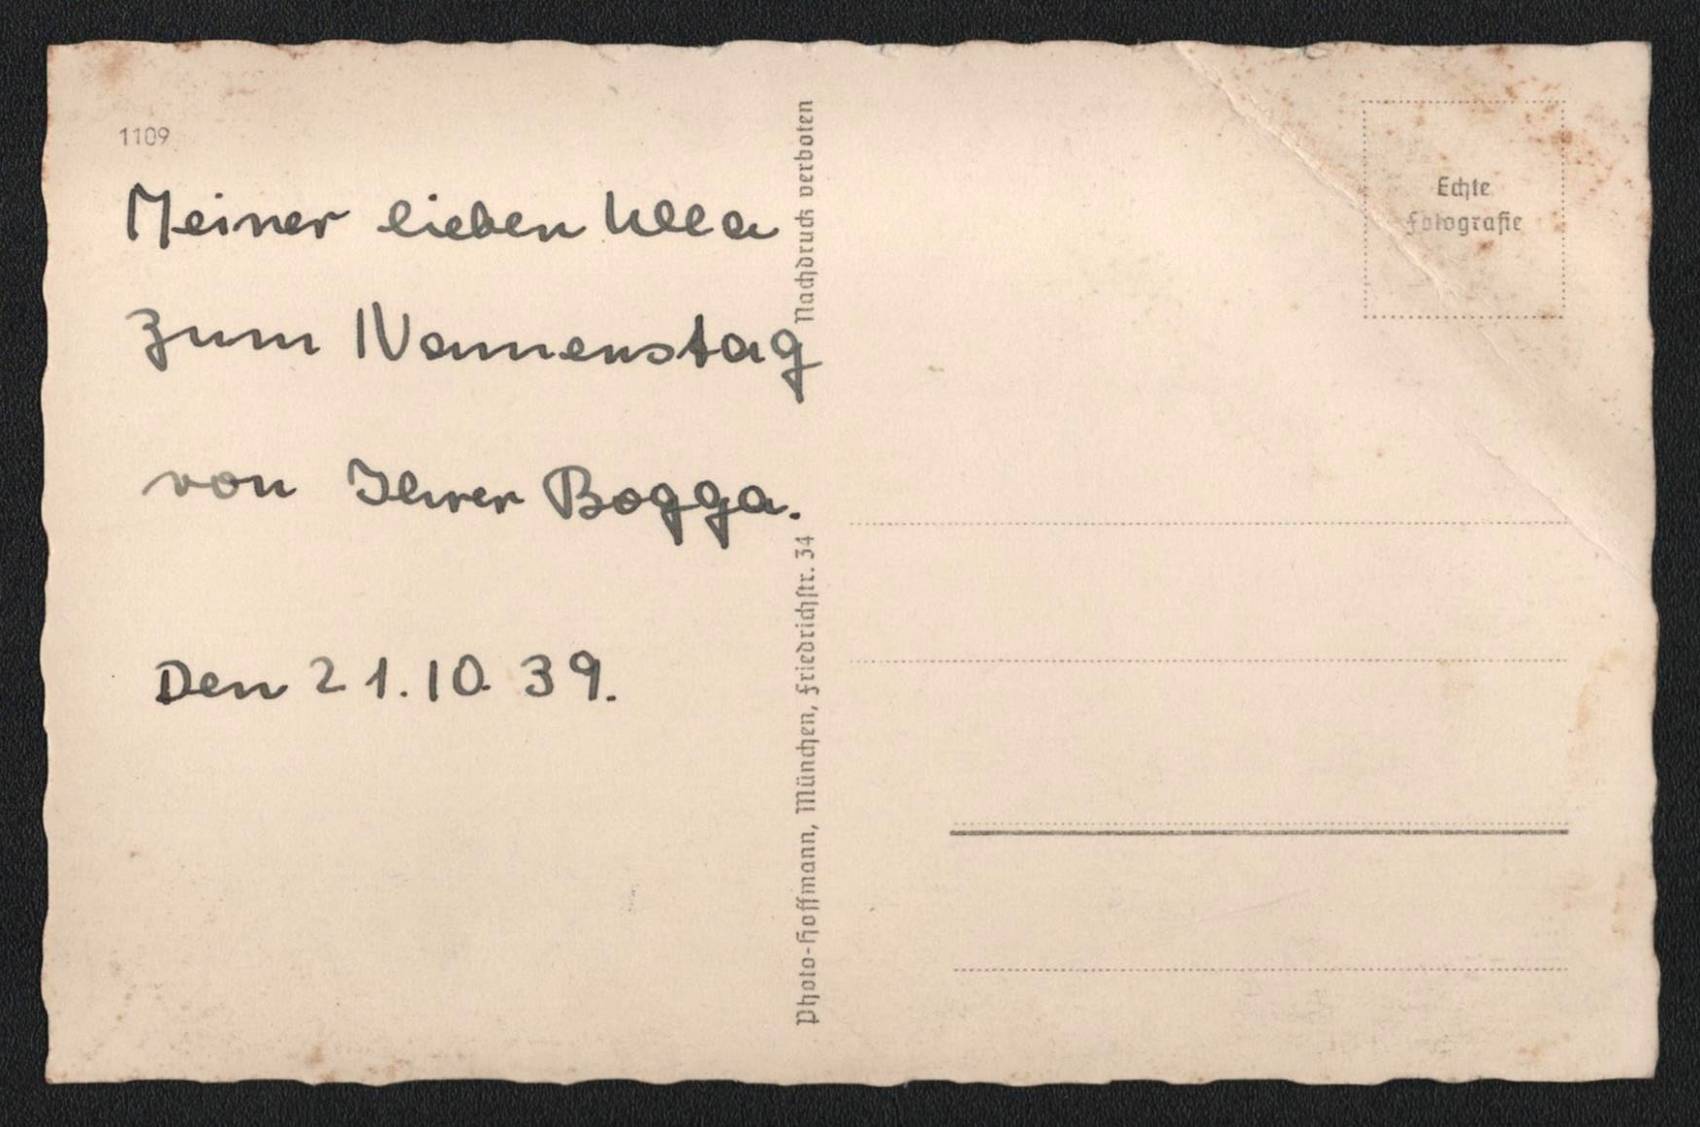 1109
Meiner lieben Ulla
zum Namenstag
von Ihrer Bogga.
Den 21.10.39.
Photo-Hoffmann, München, Friedrichstr. 34
Nachdruck verboten
Echte
Fotografie